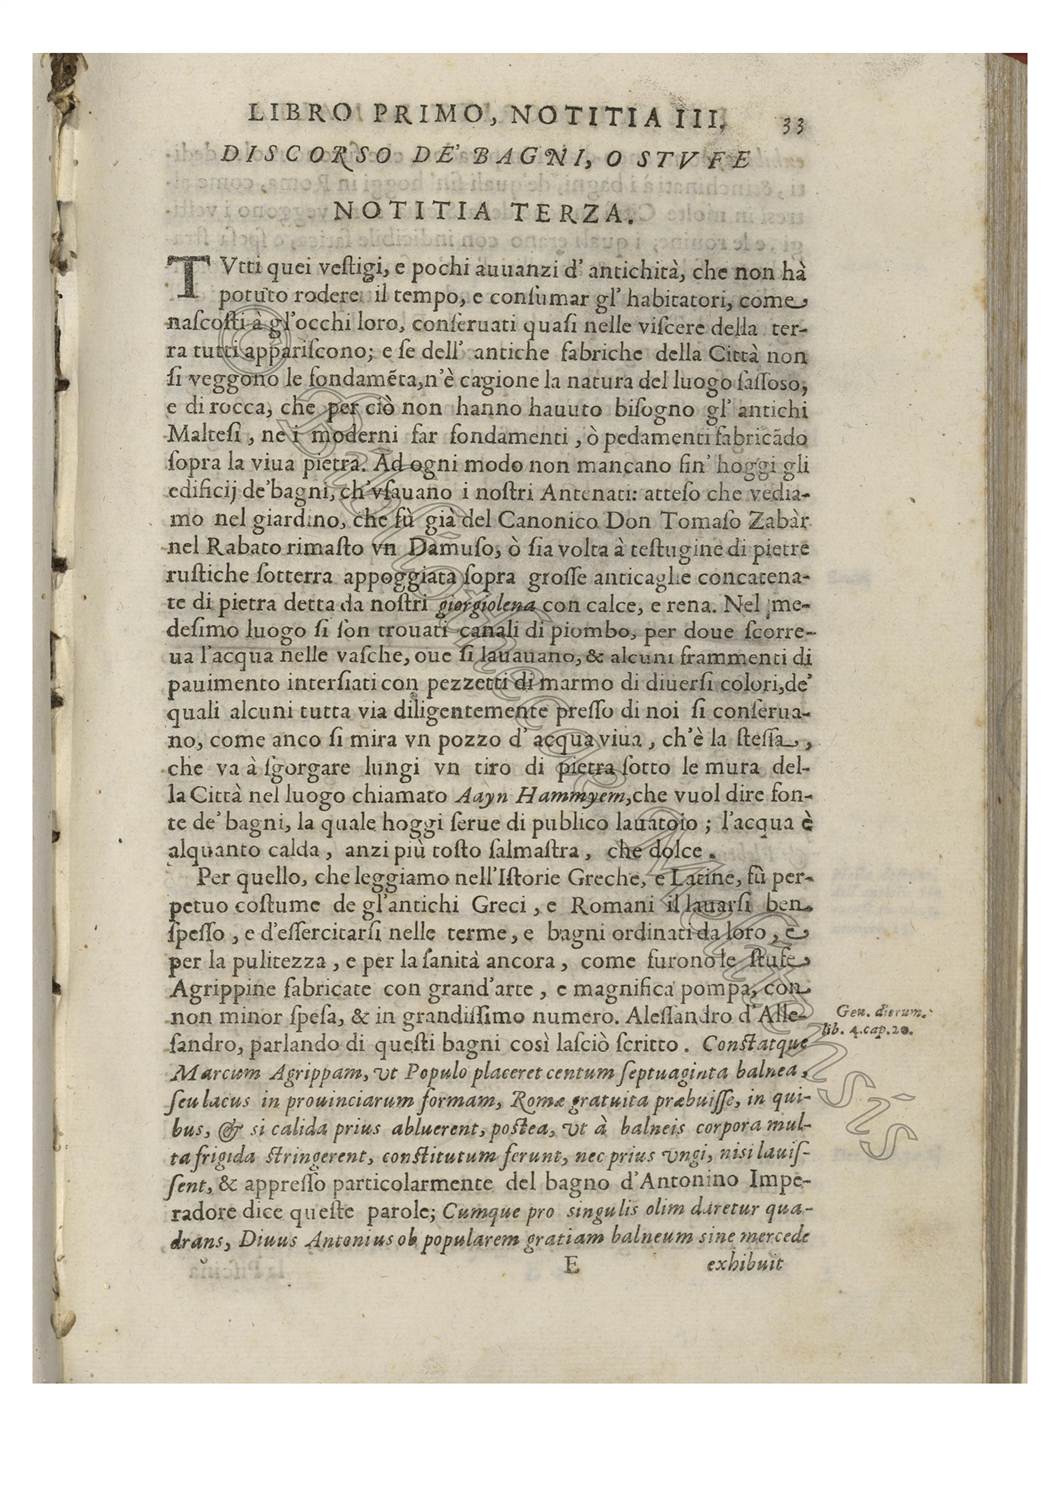 LIBRO PRIMO, NOTITIA III. 33
DISCORSO DE' BAGNI, O STVFE
NOTITIA TERZA.
TVtti quei veſtigi, e pochi auuanzi d' antichità, che non hà
potuto rodere il tempo, e conſumar gl' habitatori, come
naſcoſti à gl'occhi loro, conſeruati quaſi nelle viſcere della ter-
ra tutti appariſcono; e ſe dell' antiche fabriche della Città non
ſi veggono le fondamẽta, n'è cagione la natura del luogo ſaſſoso,
e di rocca, che per ciò non hanno hauuto biſogno gl' antichi
Malteſi, ne i moderni far fondamenti, ò pedamenti fabricãdo
ſopra la viua pietra. Ad ogni modo non mancano ſin' hoggi gli
edificij de'bagni, ch'vſauano i noſtri Antenati: atteſo che vedia-
mo nel giardino, che fù già del Canonico Don Tomaſo Zabàr
nel Rabato rimaſto vn Damuſo, ò ſia volta à teſtugine di pietre
ruſtiche ſotterra appoggiata ſopra groſſe anticaglie concatena-
te di pietra detta da noſtri giorgiolena con calce, e rena. Nel me-
deſimo luogo ſi ſon trouati canali di piombo, per doue ſcorre-
ua l'acqua nelle vaſche, oue ſi lauauano, & alcuni frammenti di
pauimento interſiati con pezzetti di marmo di diuerſi colori, de'
quali alcuni tutta via diligentemente preſſo di noi ſi conſerua-
no, come anco ſi mira vn pozzo d' acqua viua, ch'è la ſteſſa,
che va à ſgorgare lungi vn tiro di pietra ſotto le mura del-
la Città nel luogo chiamato Aayn Hammyem, che vuol dire fon-
te de' bagni, la quale hoggi ſerue di publico lauatoio; l'acqua è
alquanto calda, anzi più toſto ſalmaſtra, che dolce.
Per quello, che leggiamo nell'Iſtorie Greche, e Latine, fù per-
petuo coſtume de gl'antichi Greci, e Romani il lauarſi ben
ſpeſſo, e d'eſſercitarſi nelle terme, e bagni ordinati da loro, e
per la pulitezza, e per la ſanità ancora, come furono le ſtufe
Agrippine fabricate con grand'arte, e magnifica pompa, con
non minor ſpeſa, & in grandiſſimo numero. Aleſſandro d'Aleſ-
ſandro, parlando di queſti bagni così laſciò ſcritto. Conſtatque
Gen. dierum.
lib. 4. cap. 20.
Marcum Agrippam, vt Populo placeret centum ſeptuaginta balnea,
ſeu lacus in prouinciarum formam, Romæ gratuita præbuiſſe, in qui-
bus, & si calida prius abluerent, poſtea, vt à balneis corpora mul-
ta frigida ſtringerent, conſtitutum ferunt, nec prius vngi, niſi lauiſ-
ſent, & appreſſo particolarmente del bagno d'Antonino Impe-
radore dice queſte parole; Cumque pro singulis olim daretur qua-
drans, Diuus Antonius ob popularem gratiam balneum sine mercede
E exhibuit